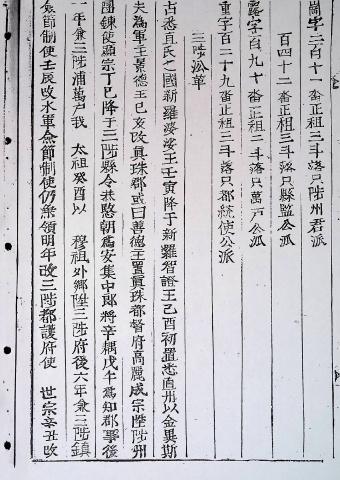 崗字二百十一畓正租三斗落只陟州君派
百四十二畓正租三斗落只縣監公派
露字百九十畓正租三斗落只萬户公派
重字百二十九畓正租三斗落只都統使公派
三陟沿革
古悉直氏之國新羅婆娑王壬寅降于新羅智證王己酉初置悉直州以金異斯
夫爲軍主景德王己亥改眞珠郡或曰善德王置眞珠都督府高麗成宗陞陟州
團鍊使顯宗丁巳降于三陟縣令恭愍朝爲安集中郎將辛禑戊午爲知郡事後
一年兼三陟浦萬户我 太祖癸酉以 穆祖外鄉陞三陟府後六年兼三陟鎭
僉節制使壬辰改水軍僉節制使仍兼領明年改三陟都護府使 世宗辛丑改